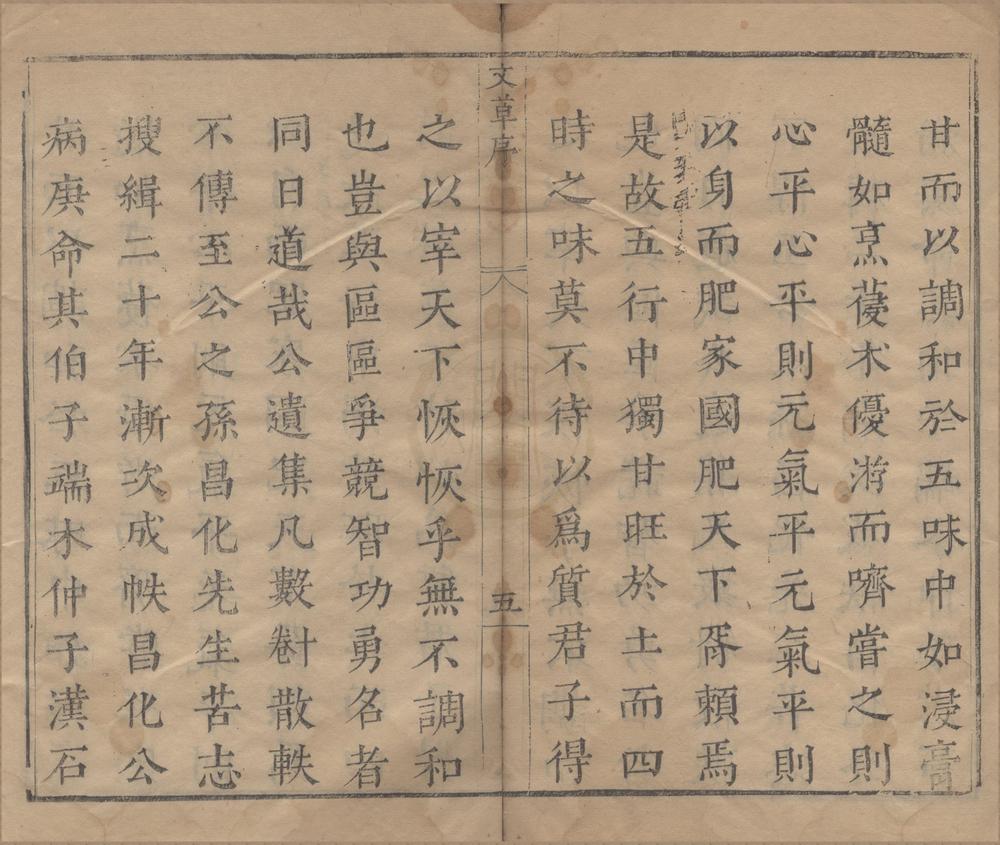 甘而以調和於五味中如浸膏
髓如烹蔆朮優游而嚌嘗之則
心平心平則元氣平元氣平則
以身而肥家國肥天下胥賴焉
是故五行中獨甘旺於土而四
時之味莫不待以爲質君子得
文草序
五
之以宰天下恢恢乎無不調和
也豈與區區爭競智功勇名者
同日道哉公遺集凡數十卷散軼
不傳至公之孫昌化先生苦志
搜緝二十年漸次成帙昌化公
病庚命其伯子端木仲子漢石